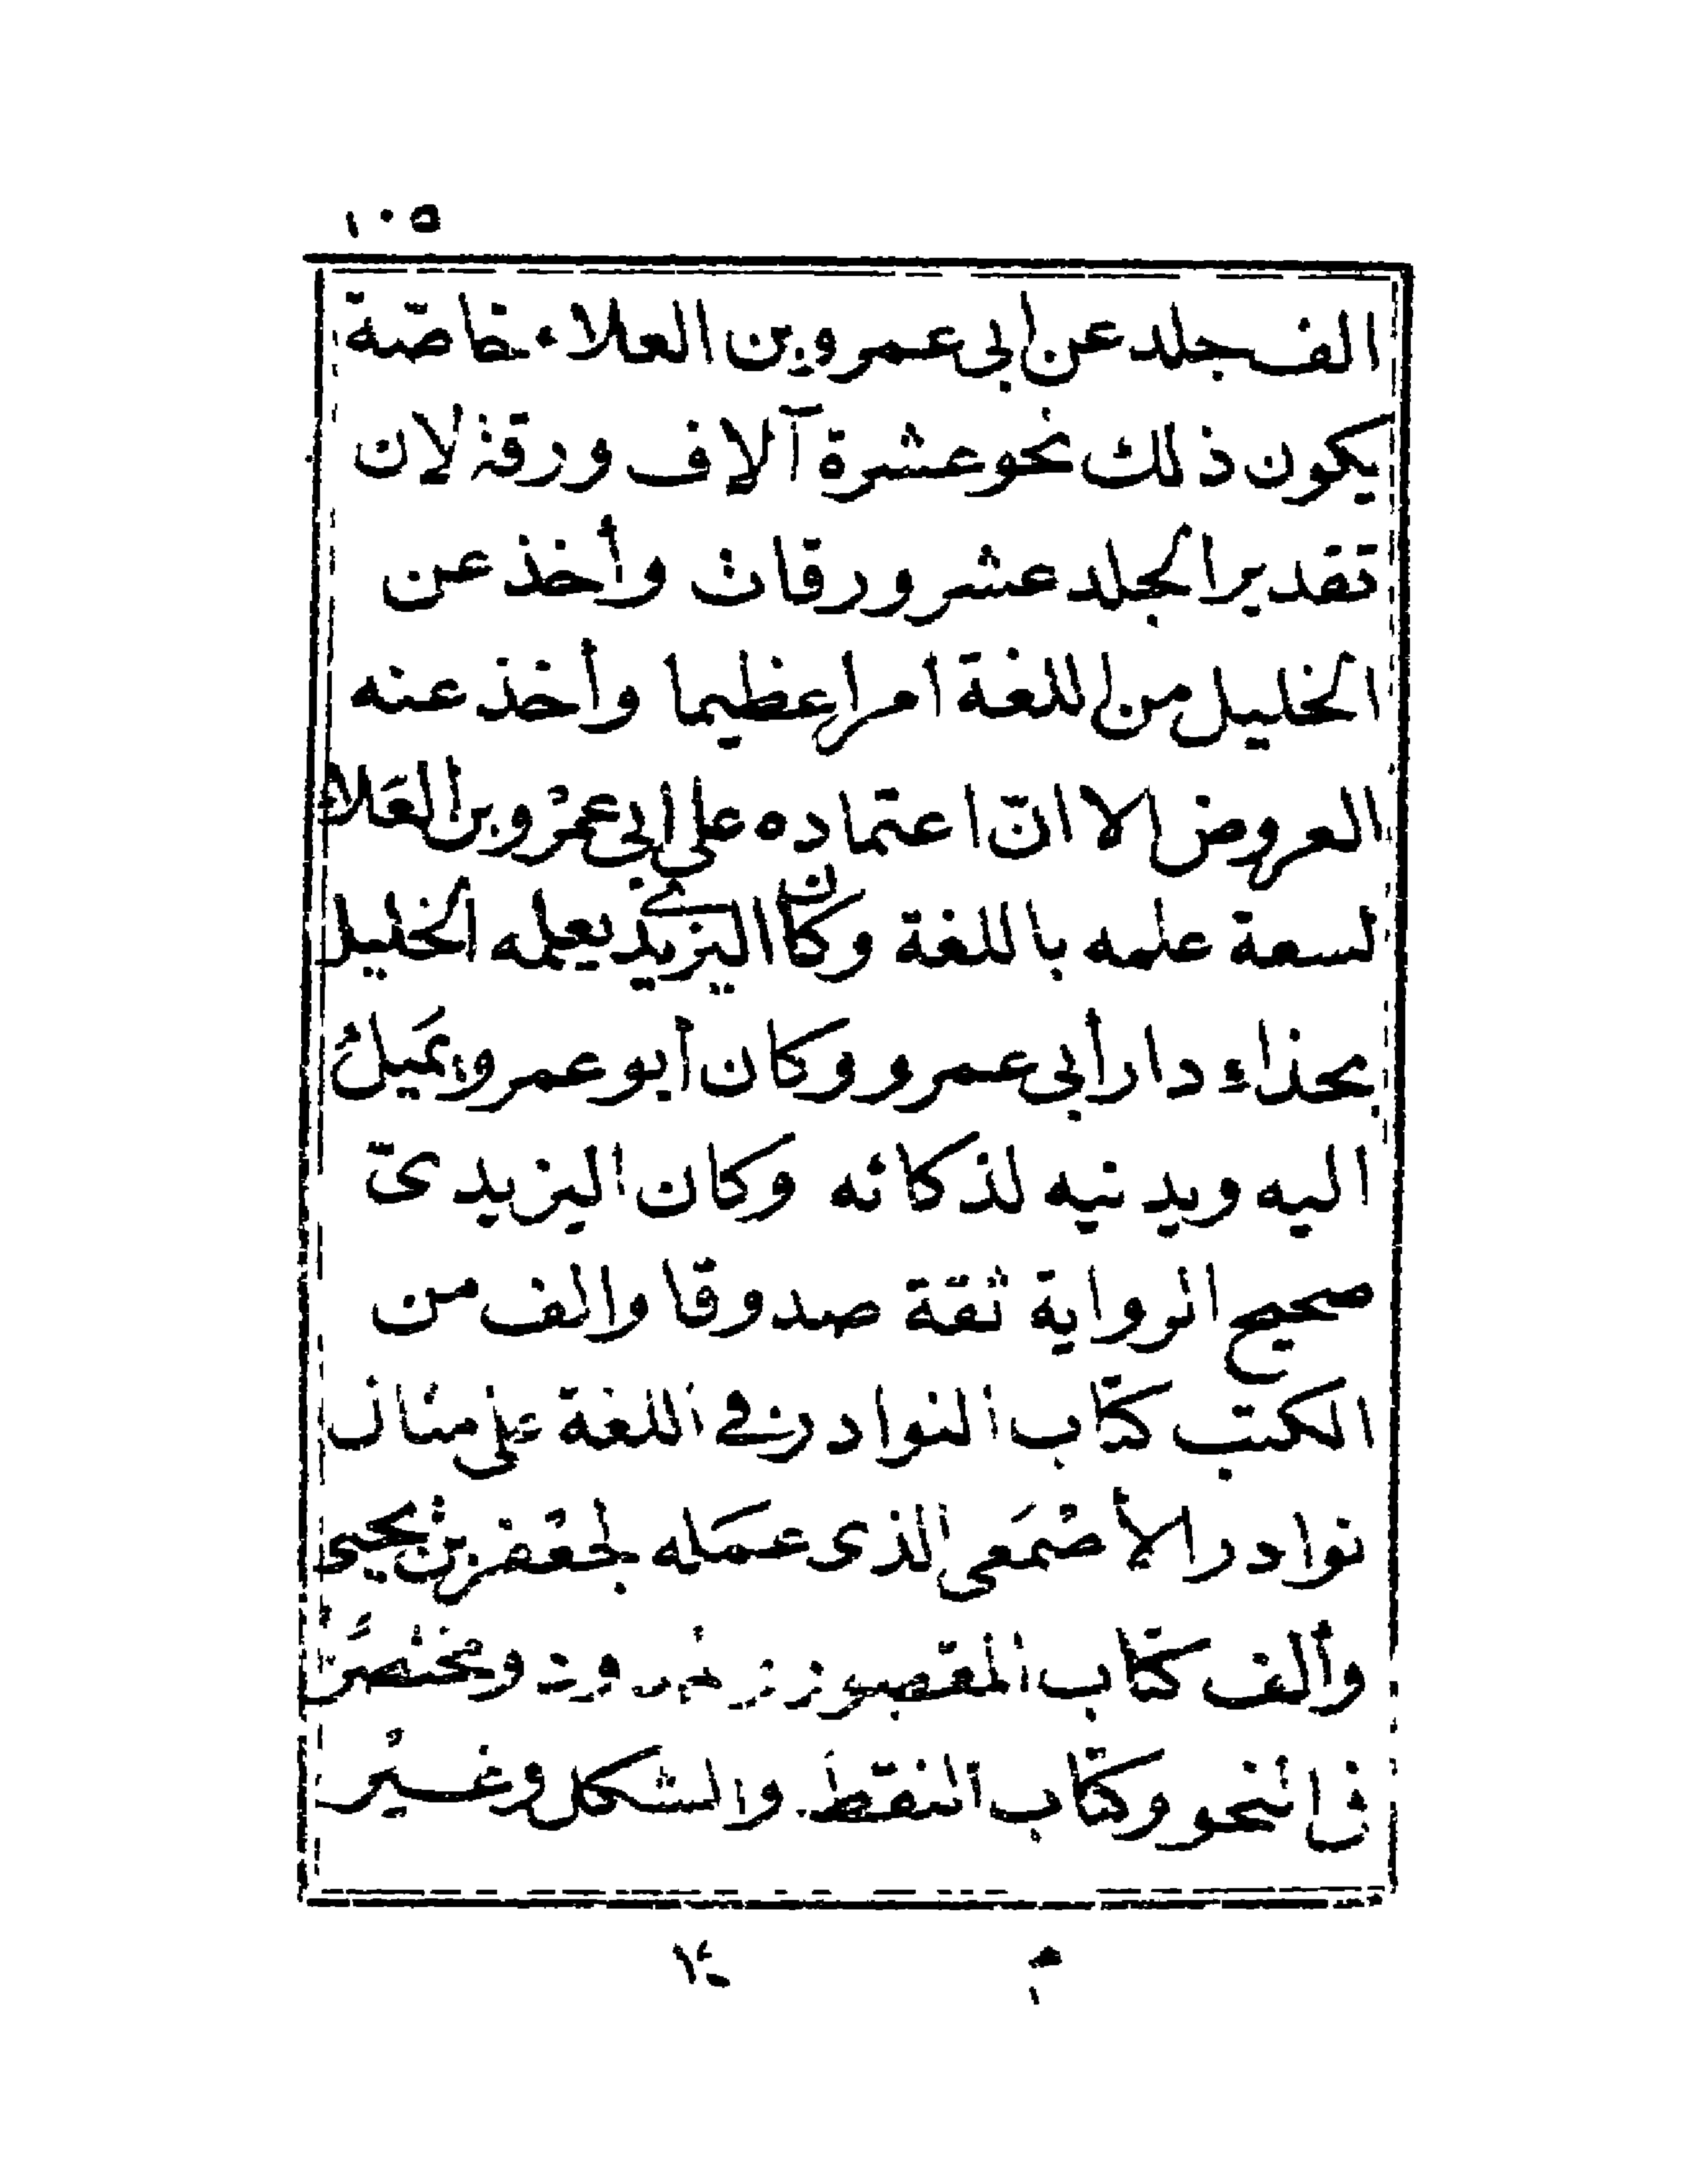 ١٠٥
الف جلد عن ابى عمرو بن العلاء خاصّة
يكون ذلك نحو عشرة آلاف ورقة لان
تقدير الجلد عشر ورقات وأخذ عن
الخليل من اللغة امرا عظيما وأخذ عنه
العروض الا انّ اعتماده على ابى عمْرو بن العَلاء
لسعة علمه باللغة وكان اليزيدى يعلمه الخليل
بحذاء دار أبى عمرو وكان أبو عمرو يَميلُ
اليه ويدنيه لذكائه وكان اليزيدىّ
صحيح الرواية ثقة صدوقا والف من
الكتب كتاب النوادر في اللغة على مثال
نوادر الأصْمَعى الذى عمَله لجعْفر بن يحيى
وألف كتاب المقصور والممدود ومختصرًا
فى النحو وكتاب النقط والشكل وغيْر
م ١٤